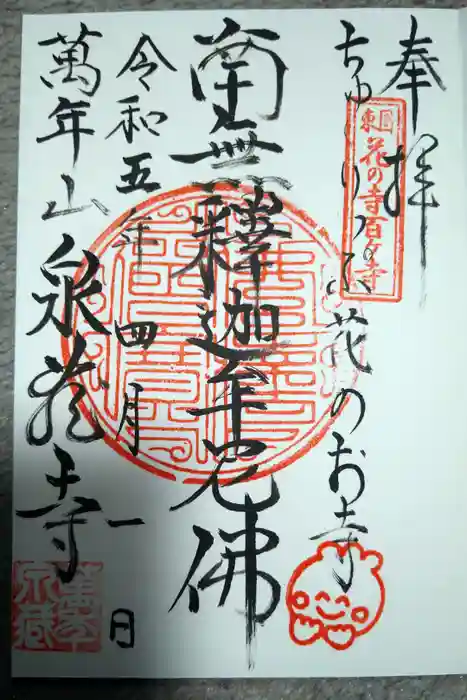 奉拝
東国花の寺百ヶ寺
ちゅうりっぷ花のお寺
南無釋迦牟尼佛
令和五年四月一日
萬年山泉蔵寺